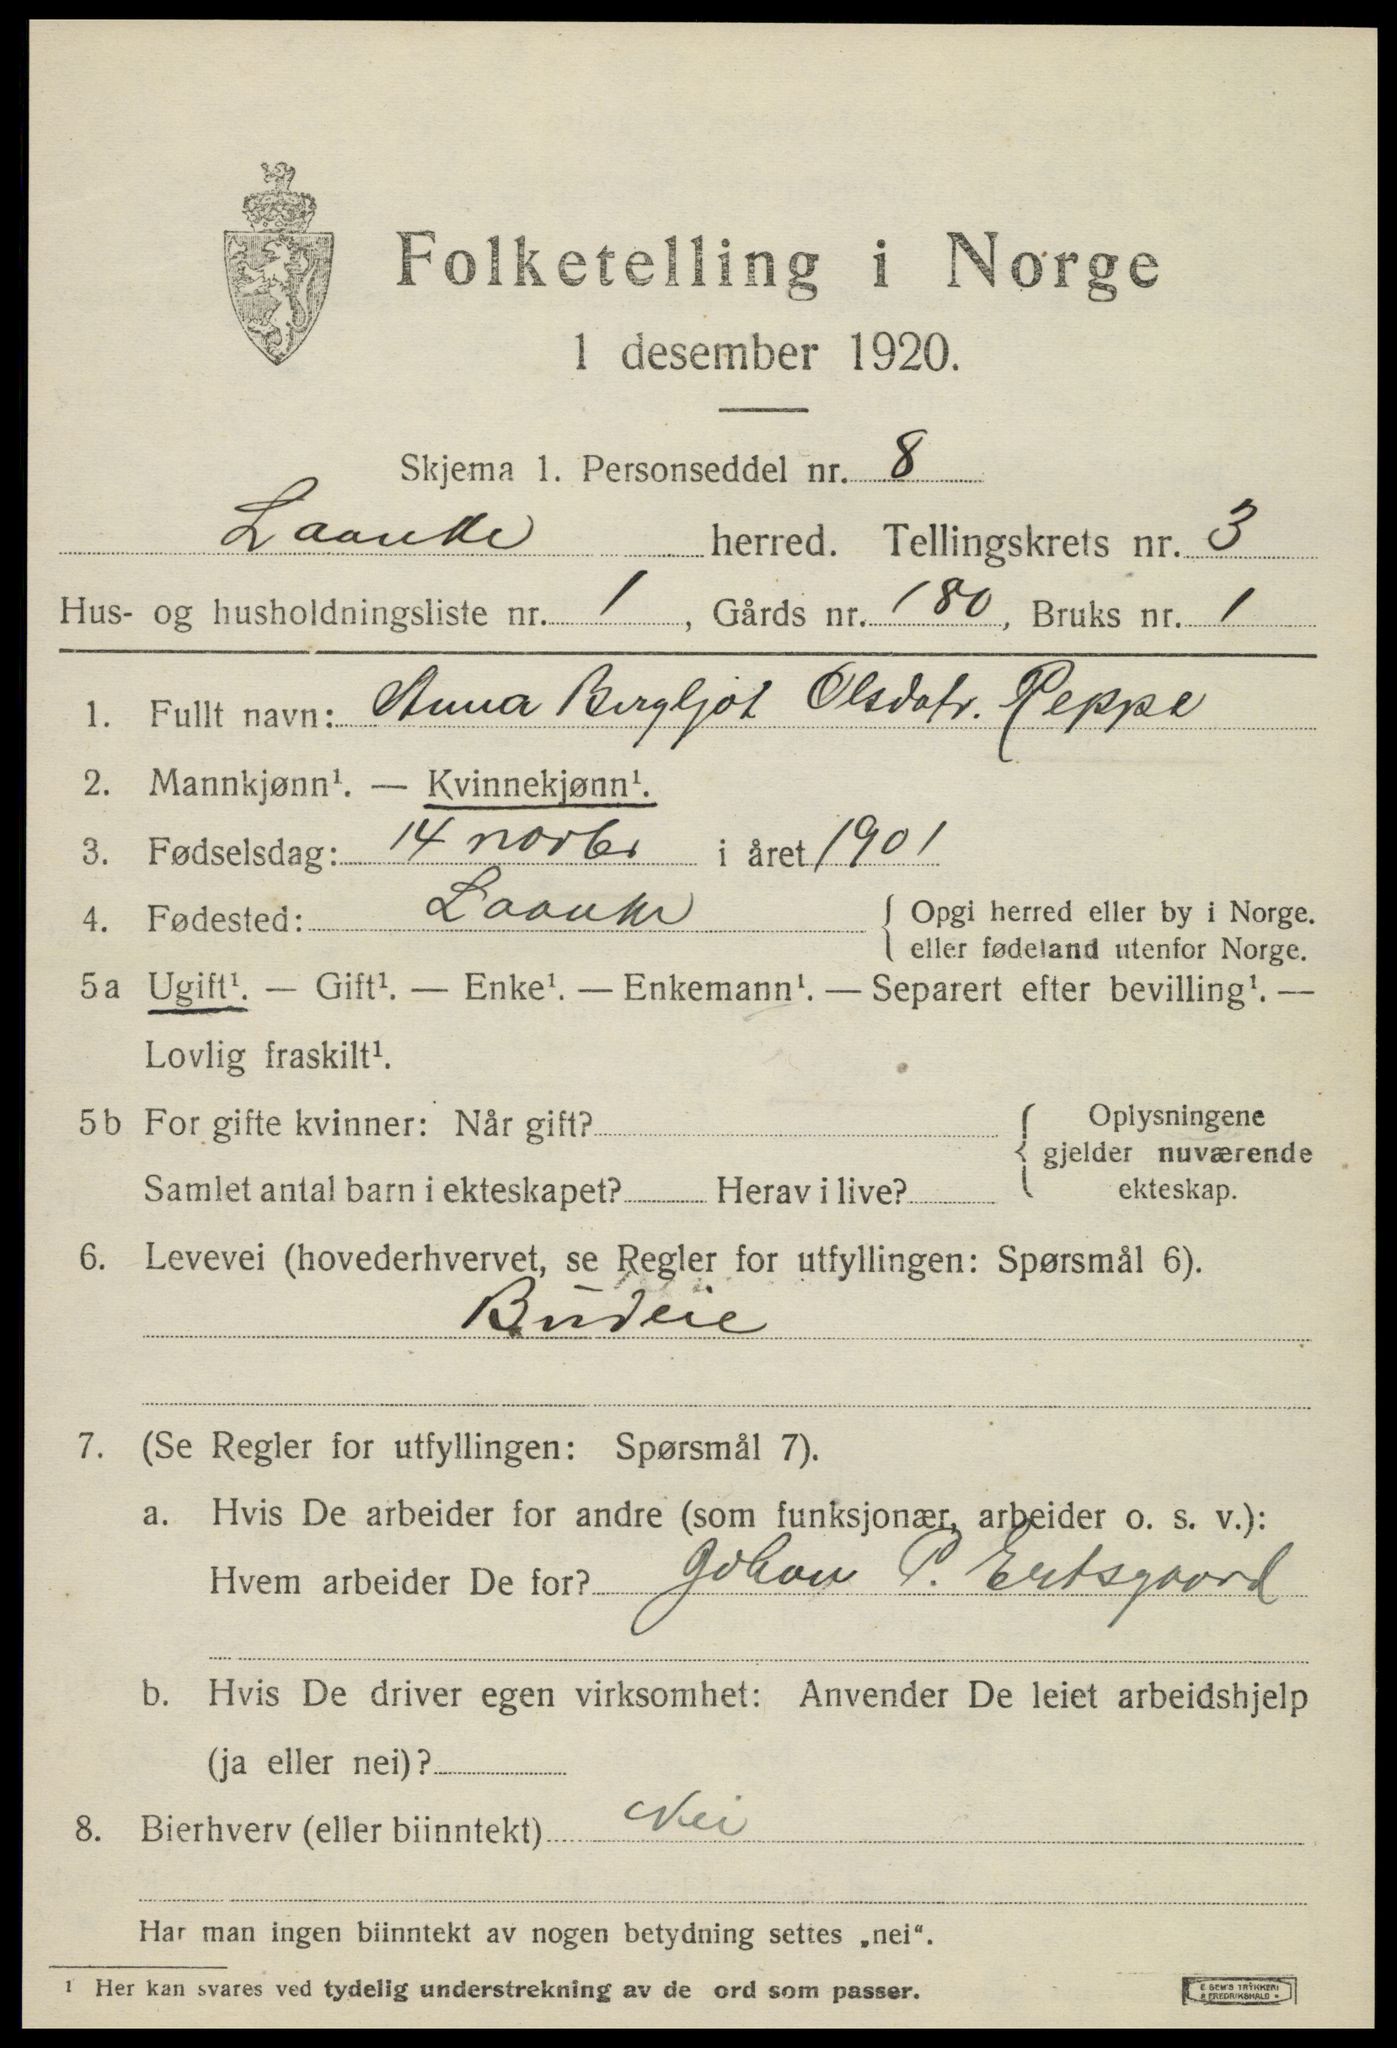 Folketelling i Norge
1 desember 1920.
Skjema 1. Personseddel nr. 8
Laanke herred. Tellingskrets nr. 3
Hus- og husholdningsliste nr. 1, Gårds nr. 180, Bruks nr. 1
1. Fullt navn: Anna Bergljot Olsdatr. Reppe
2. Mannkjønn¹. — Kvinnekjønn¹.
3. Fødselsdag: 14 novbr i året 1901
4. Fødested: Laanke { Opgi herred eller by i Norge.
eller fødeland utenfor Norge.
5a Ugift¹. — Gift¹. — Enke¹. — Enkemann¹. — Separert efter bevilling¹. —
Lovlig fraskilt¹.
5b For gifte kvinner: Når gift? { Oplysningene
gjelder nuværende
Samlet antal barn i ekteskapet? Herav i live? ekteskap.
6. Levevei (hovederhvervet, se Regler for utfyllingen: Spørsmål 6).
Budeie
7. (Se Regler for utfyllingen: Spørsmål 7).
a. Hvis De arbeider for andre (som funksjonær, arbeider o. s. v.):
Hvem arbeider De for? Johan P. Ertsgaard
b. Hvis De driver egen virksomhet: Anvender De leiet arbeidshjelp
(ja eller nei)?
8. Bierhverv (eller biinntekt) Nei
Har man ingen biinntekt av nogen betydning settes „nei“.
1 Her kan svares ved tydelig understrekning av de ord som passer.
E SEM'S TRYKKERI
FREDRIKSHALD